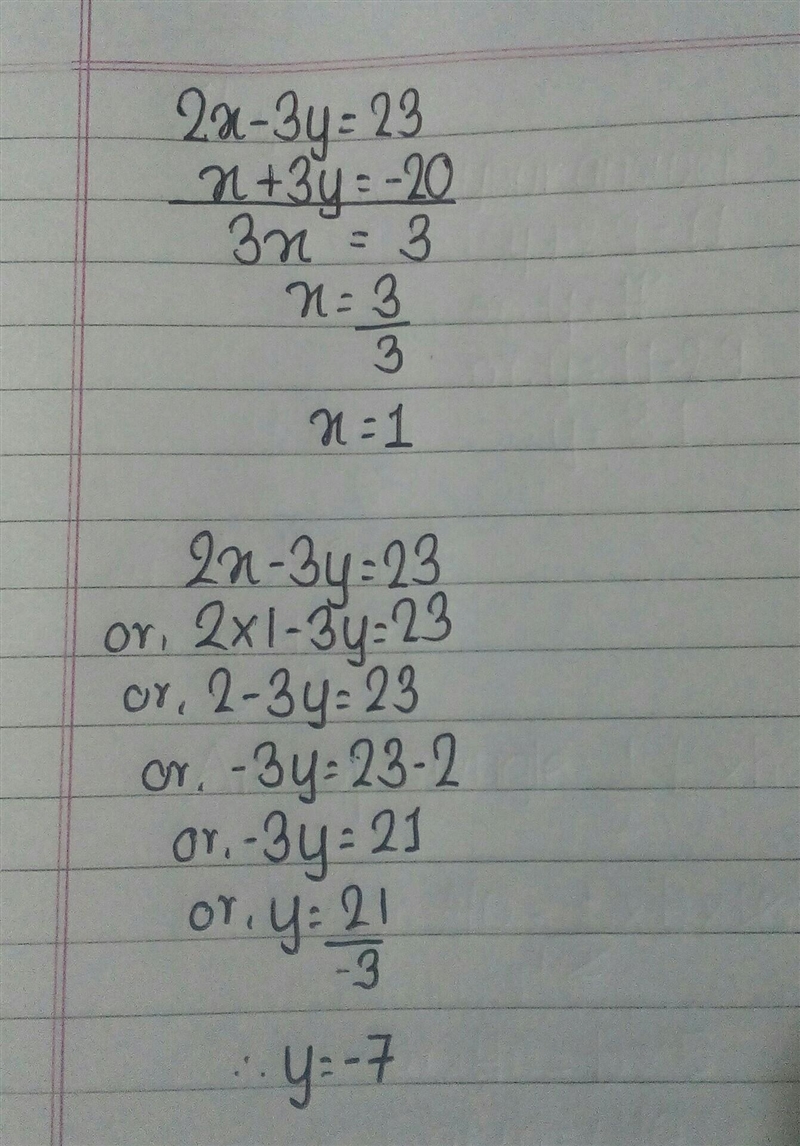 2x-3y=23
x+3y=-20
3x = 3
x=3/3
x=1
2x-3y=23
or, 2×1-3y=23
or, 2-3y=23
or, -3y=23-2
or, -3y=21
or, y=21/-3
∴ y=-7